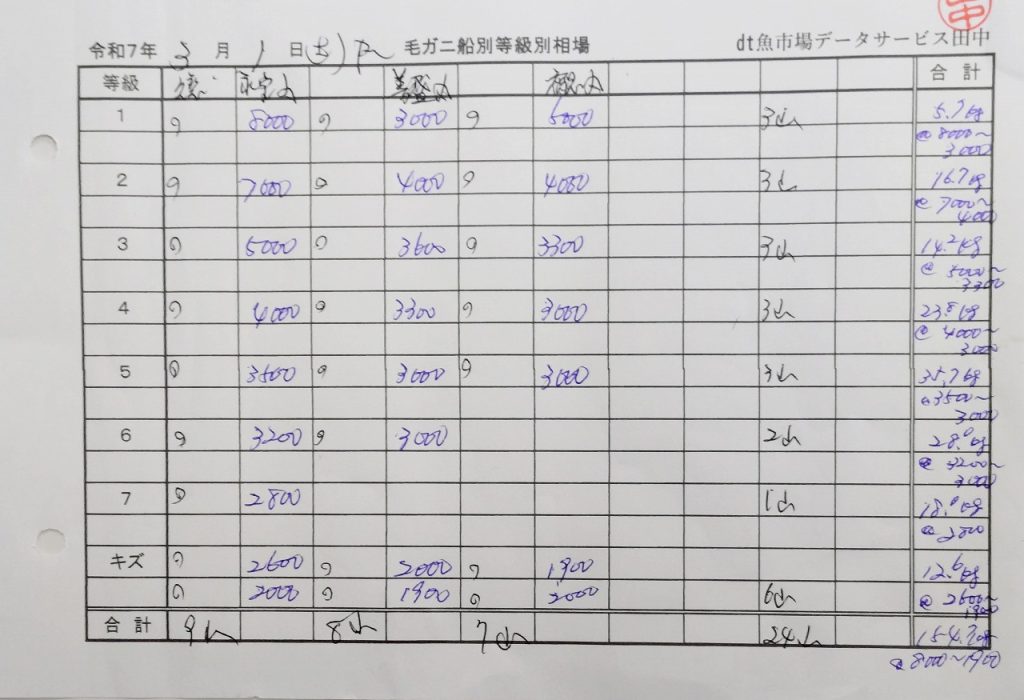 令和7年 3 月 1 日(土) 毛ガニ船別等級別相場 dt魚市場データサービス田中
等級 合計
1 8000 3000 5000 3山 5.7kg
@ 8000~
3000
2 7000 4000 4000 3山 16.7kg
@ 7000~
4000
3 5000 3600 3300 3山 14.2kg
@ 5000~
3300
4 4000 3300 3000 3山 23.8kg
@ 4000~
3000
5 3500 3000 3000 3山 35.7kg
@3500~
3000
6 3200 3000 2山 28.0kg
@ 3200~
3000
7 2800 1山 18.0kg
@ 2800
キズ 2600 2000 1900 12.6kg
2000 1900 2000 6山 @ 2600~
1900
合計 9山 8山 7山 24山 154.7kg
@ 8000~1900